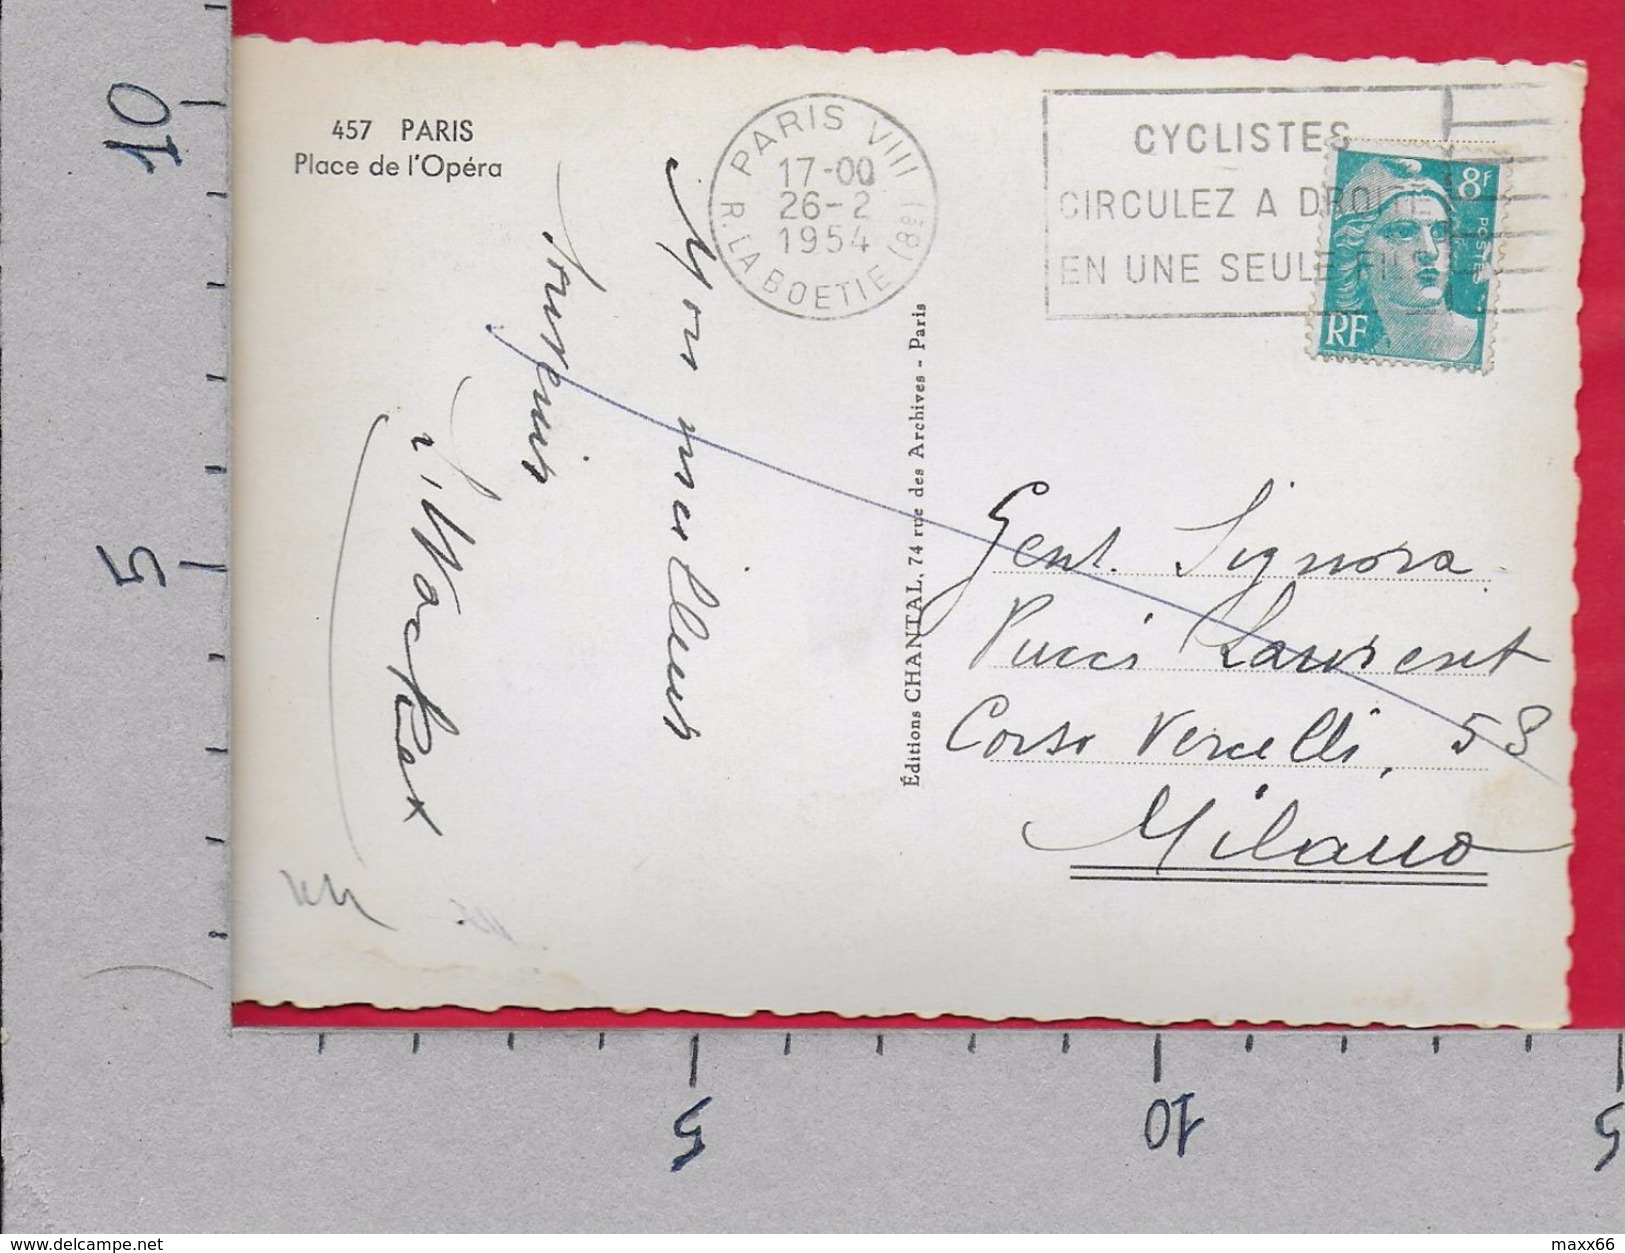 457 PARIS
Place de l'Opéra
PARIS VIII
17-00
26-2
1954
R. LA BOETIE (8e)
CYCLISTES
CIRCULEZ A DROITE
EN UNE SEULE FILE
8F
POSTES
RF
Mon meilleur
souvenir
Éditions CHANTAL, 74 rue des Archives - Paris
Gent. Signora
Pucci Laurent
Corso Vercelli, 58
Milano
10
5
5
10
5
www.delcampe.net
maxx66